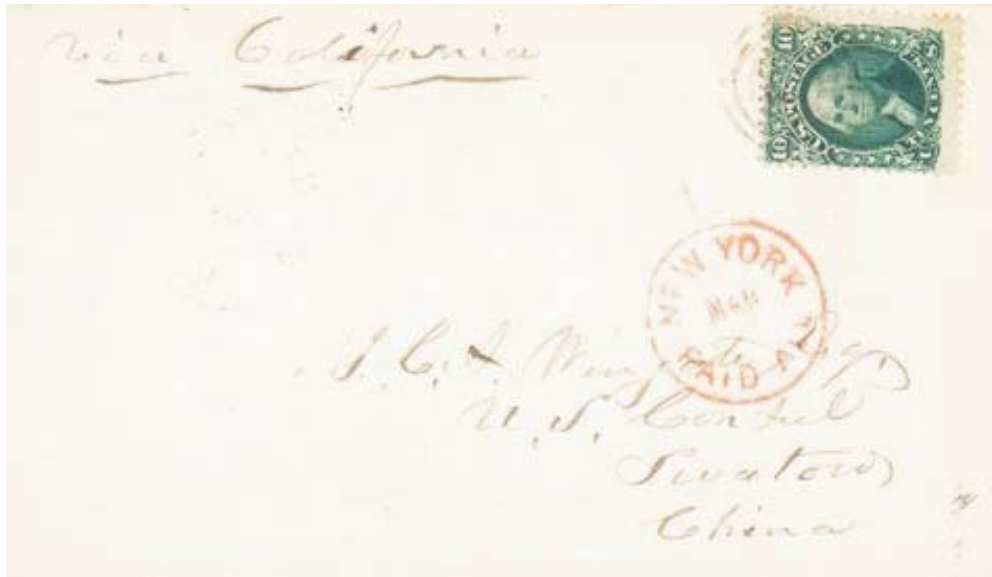 via California
10 U.S. POSTAGE 10
TEN CENTS
NEW YORK
MAR
PAID ALL
J. C. A. Wingate Esq.
U. S. Consul
Swatow
China